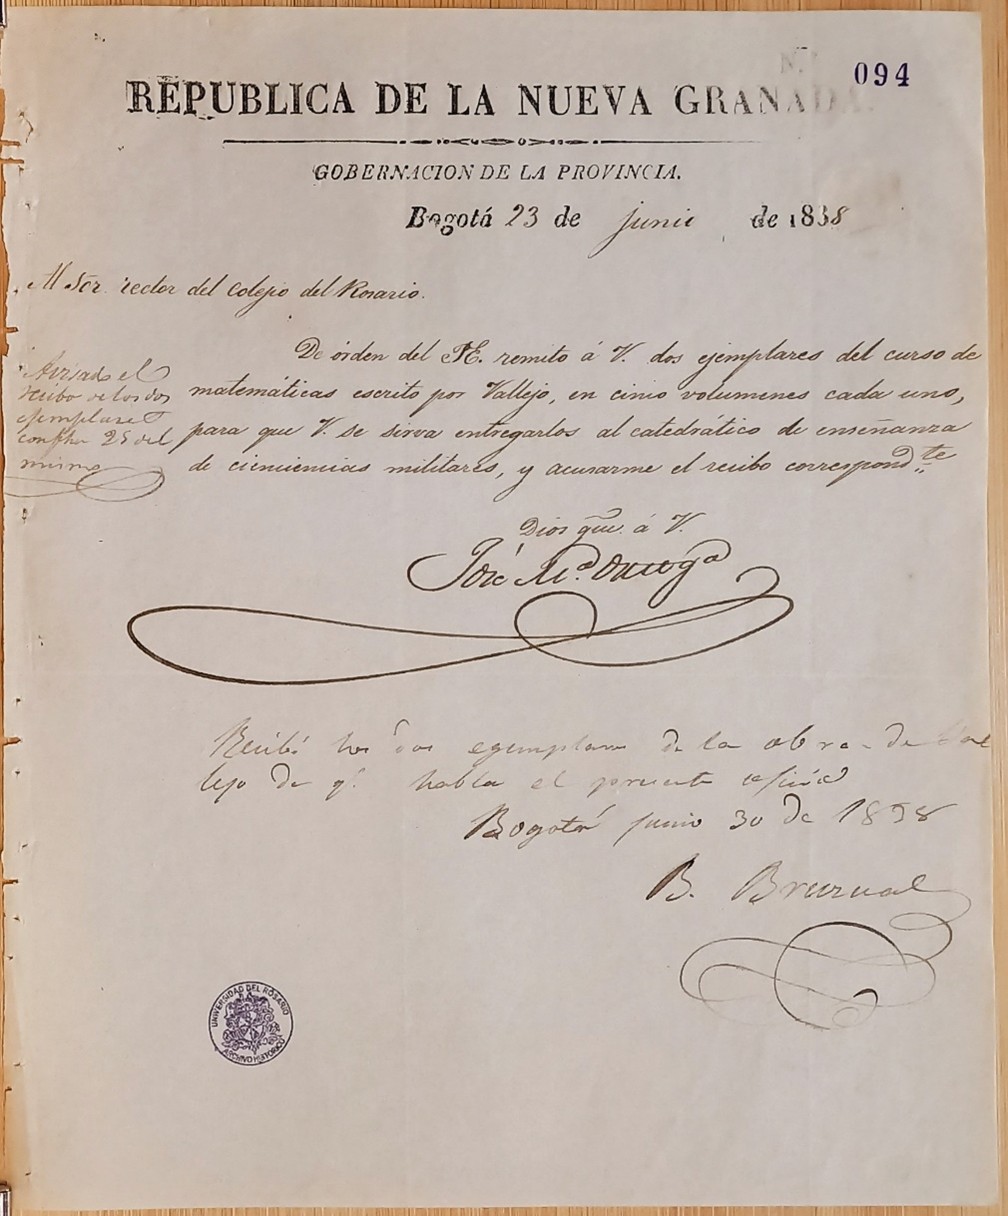 094
REPUBLICA DE LA NUEVA GRANADA.
GOBERNACION DE LA PROVINCIA.
Bogotá 23 de junio de 1838
Al Sor. rector del Colejio del Rosario.
De órden del P.E. remito á V. dos ejemplares del curso de
matemáticas escrito por Vallejo, en cinco volumenes cada uno,
para que V. se sirva entregarlos al catedrático de enseñanza
de cienciencias militares, y acusarme el recibo correspondte.
Avisado el
recibo de los dos
ejemplares
con fha 25 del
mismo
Dios gue. á V.
José Ma. Ortega
Recibí los dos egemplares de la obra de Val
lejo de q. habla el presente oficio
Bogotá junio 30 de 1838
B. Bruzual
UNIVERSIDAD DEL ROSARIO
ARCHIVO HISTORICO